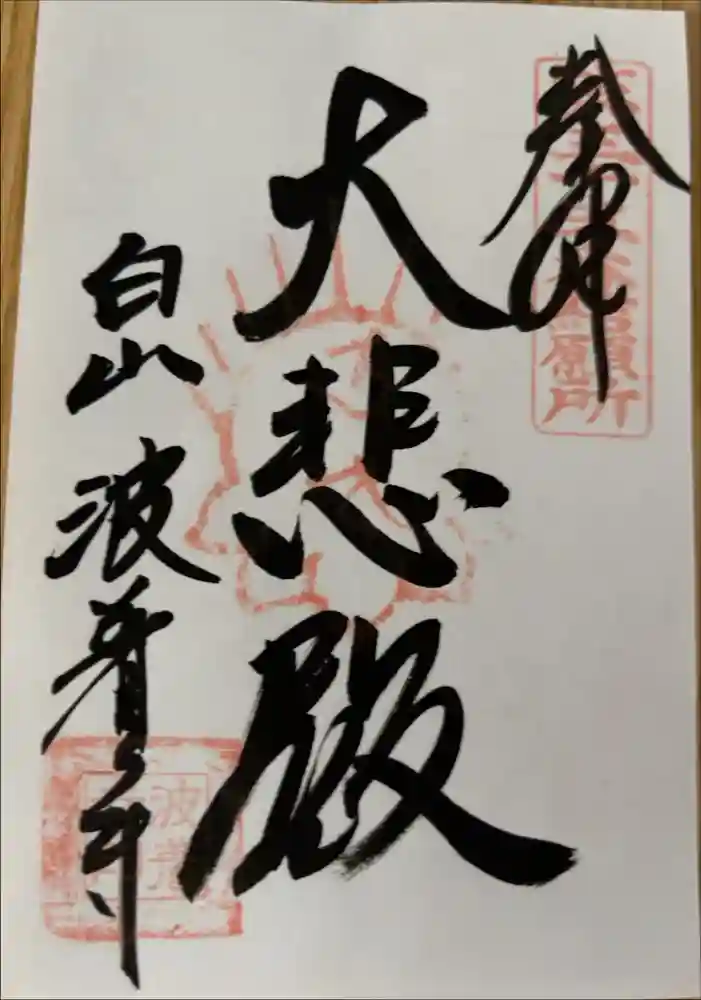 奉拝
願所
大悲殿
白山 波着寺
波着